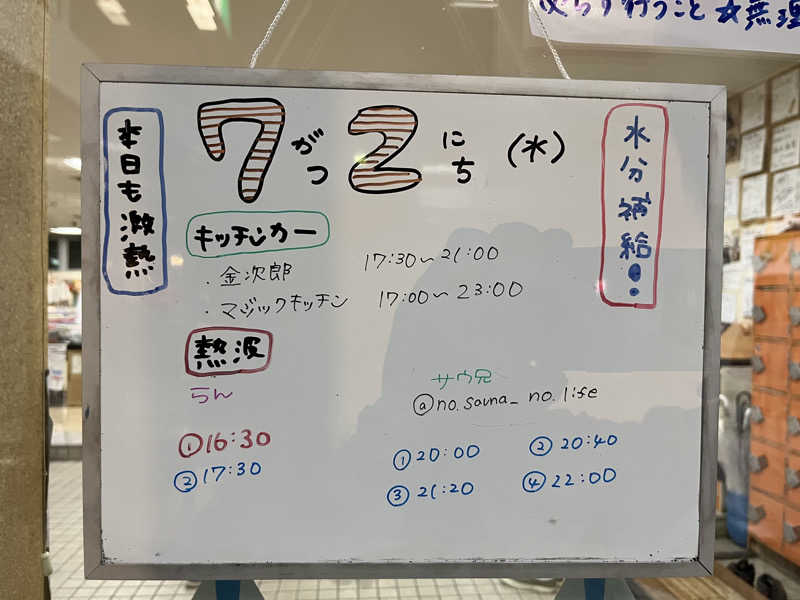 必ず行うこと☆無理
本日も激熱
7がつ2にち(水)
水分補給!!
キッチンカー
・金次郎 17:30~21:00
・マジックキッチン 17:00~23:00
熱波
らん
①16:30
②17:30
サウ兄
@no.sauna_no.life
①20:00 ②20:40
③21:20 ④22:00